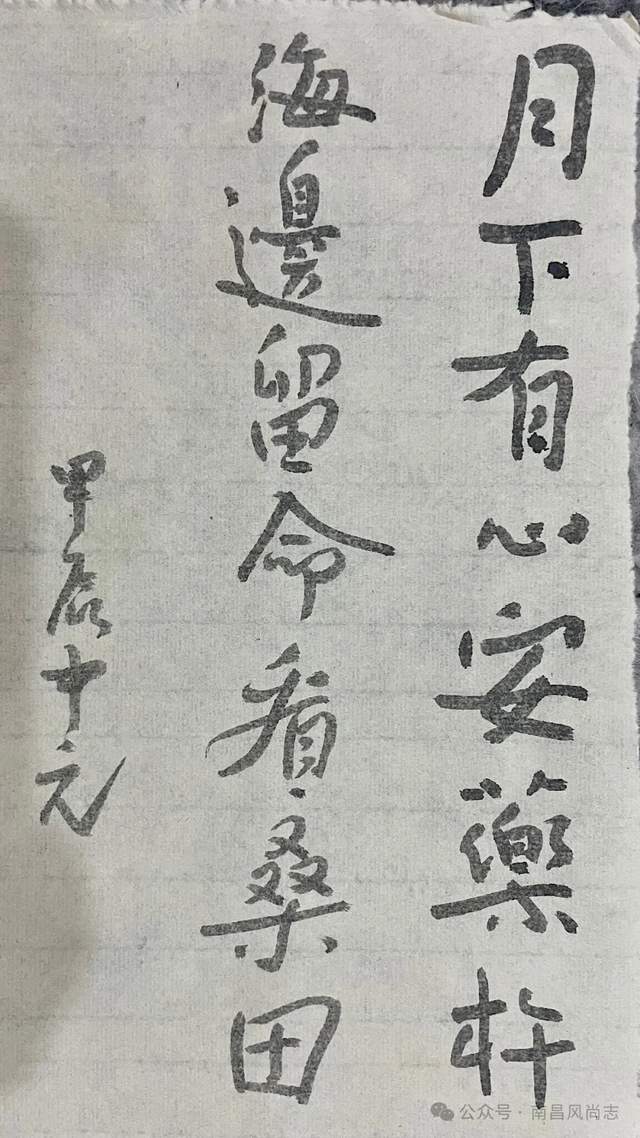 月下有心安藥杵
海邊留命看桑田
甲辰十元
公众号·南昌风尚志